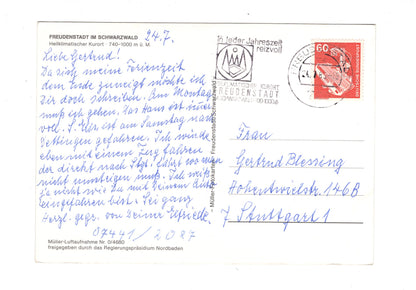 FREUDENSTADT IM SCHWARZWALD
Heilklimatischer Kurort · 740-1000 m ü. M.
24.7.
Liebe Gertrud!
Da sich meine Ferienzeit
dem Ende zuneigt möchte ich
Dir doch schreiben. Am Montag
muß ich gehen. Das Haus ist immer
voll. S. ist am Samstag nach
gefahren. Ich würde
eben mit einem Zug fahren
der direkt nach Stgt. fährt wo man
nicht umsteigen muß. Ich weiß
ja nicht wie Du mit Deinem
eingefahren bist. Sei ganz
Herzl. gegr. von Deiner Elfriede.
07441/2027
Müller-Luftaufnahme Nr. 0/4680
freigegeben durch das Regierungspräsidium Nordbaden
Müller-Postkarten, Freudenstadt/Schwarzwald
In jeder Jahreszeit
reizvoll
KURORT
FREUDENSTADT
60
DEUTSCHE BUNDESPOST
Frau
Gertrud Blessing
Hohentwielstr. 146B
7 Stuttgart 1